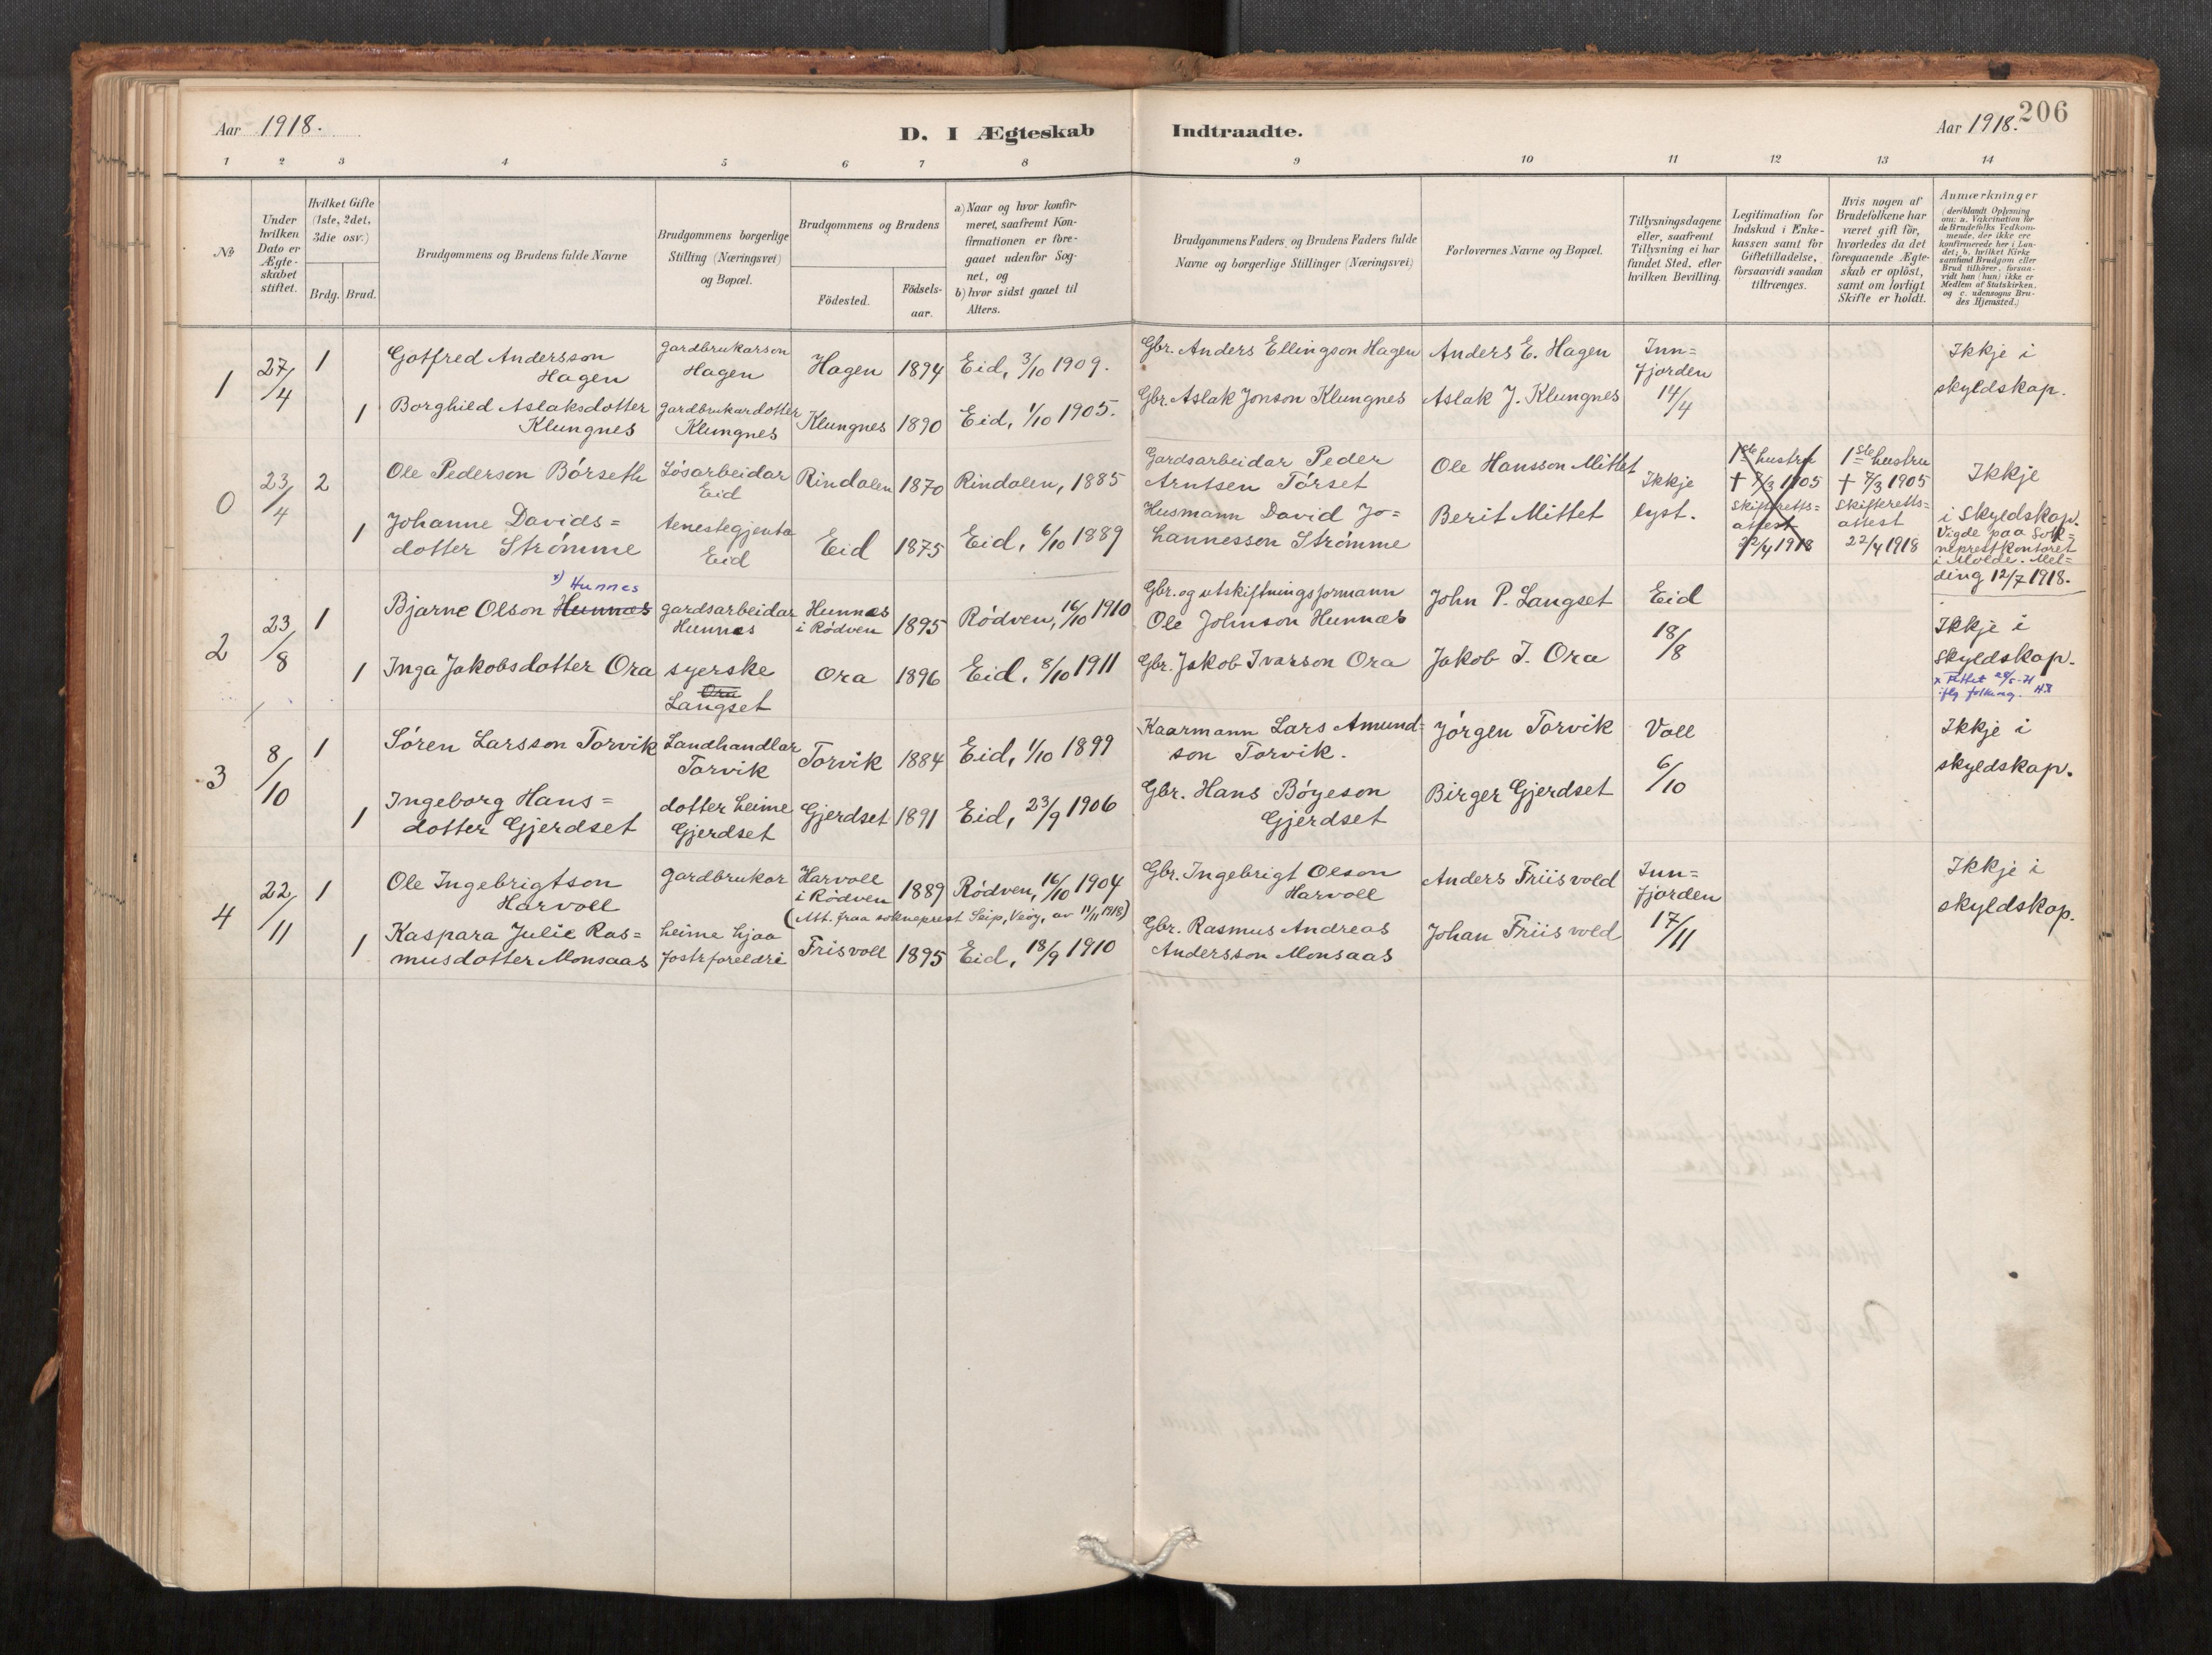 Aar 1918.
D. I Ægteskab Indtraadte.
Aar 1918.
206
1 2 3 4 5 6 7 8 9 10 11 12 13 14
No
Under hvilken Dato er Ægte-skabet stiftet.
Hvilket Gifte (1ste, 2det, 3die osv.)
Brdg. Brud.
Brudgommens og Brudens fulde Navne
Brudgommens borgerlige Stilling (Næringsvei) og Bopæl.
Brudgommens og Brudens
Födested.
Födsels-aar.
a) Naar og hvor konfir-meret, saafremt Kon-firmationen er fore-gaaet udenfor Sog-net, og
b) hvor sidst gaaet til Alters.
Brudgommens Faders og Brudens Faders fulde Navne og borgerlige Stillinger (Næringsvei)
Forlovernes Navne og Bopæl.
Tillysningsdagene eller, saafremt Tillysning ei har fundet Sted, efter hvilken Bevilling.
Legitimation for Indskud i Enke-kassen samt for Giftetilladelse, forsaavidt saadan tiltrænges.
Hvis nogen af Brudefolkene har været gift för, hvorledes da det foregaaende Ægte-skab er oplöst, samt om lovligt Skifte er holdt.
Anmærkninger
(deriblandt Oplysning om: a. Vakcination for de Brudefolks Vedkom-mende, der ikke ere konfirmerede her i Lan-det; b. hvilket Kirke samfund Brudgom eller Brud tilhörer, forsaa-vidt han (hun) ikke er Medlem af Statskirken, og c. udensogns Bru-des Hjemsted.)
1
27/4
1
Gotfred Andersson
Hagen
gardbrukarson
Hagen
Hagen
1894
Eid, 3/10 1909.
Gbr. Anders Ellingson Hagen
Anders E. Hagen
Inn=
fjorden
14/4
Ikkje i
skyldskap.
1
Borghild Aslaksdotter
Klungnes
gardbrukardotter
Klungnes
Klungnes
1890
Eid, 1/10 1905.
Gbr. Aslak Jonson Klungnes
Aslak J. Klungnes
0
23/4
2
Ole Pederson Börseth
Lösarbeidar
Eid
Rindalen
1870
Rindalen, 1885
Gardsarbeidar Peder
Arntsen Törset
Ole Hansson Mittet
Ikkje
lyst.
1ste hustru
+ 7/3 1905
Skifteretts=
attest
22/4 1918
1ste hustru
+ 7/3 1905
Skifteretts=
attest
22/4 1918
Ikkje
i skyldskap.
Vigde paa Sok=
neprestkontoret
i Molde. Mel=
ding 12/7 1918.
1
Johanne Davids=
dotter Strömme
tenestegjenta
Eid
Eid
1875
Eid, 6/10 1889
Husmann David Jo=
hannesson Strömme
Berit Mittet
2
23/8
1
x) Hunnes
Bjarne Olson Hunnæs
gardsarbeidar
Hunnes
Hunnæs
i Rödven
1895
Rödven, 16/10 1910
Gbr. og utskiftningsformann
Ole Johnson Hunnæs
John P. Langset
Eid
18/8
Ikkje i
skyldskap.
1
Inga Jakobsdotter Ora
syerske
Ora
Langset
Ora
1896
Eid, 8/10 1911
Gbr. Jakob Ivarson Ora
Jakob I. Ora
3
8/10
1
Sören Larsson Torvik
Landhandlar
Torvik
Torvik
1884
Eid, 1/10 1899
Kaarmann Lars Amund=
son Torvik.
Jörgen Torvik
Voll
6/10
Ikkje i
skyldskap.
1
Ingeborg Hans=
dotter Gjerdset
dotter heime
Gjerdset
Gjerdset
1891
Eid, 23/9 1906
Gbr. Hans Böyeson
Gjerdset
Birger Gjerdset
4
22/11
1
Ole Ingebrigtson
Harvoll
gardbrukar
Harvoll
i Rödven
1889
Rödven, 16/10 1904
(Att. fraa sokneprest Seip, Veöy, av 11/11 1918)
Gbr. Ingebrigt Olson
Harvoll
Anders Friisvold
Inn=
fjorden
17/11
Ikkje i
skyldskap.
1
Kaspara Julie Ras=
musdotter Monsaas
heime hjaa
fostrforeldri
Frisvoll
1895
Eid, 18/9 1910
Gbr. Rasmus Andreas
Andersson Monsaas
Johan Friisvold